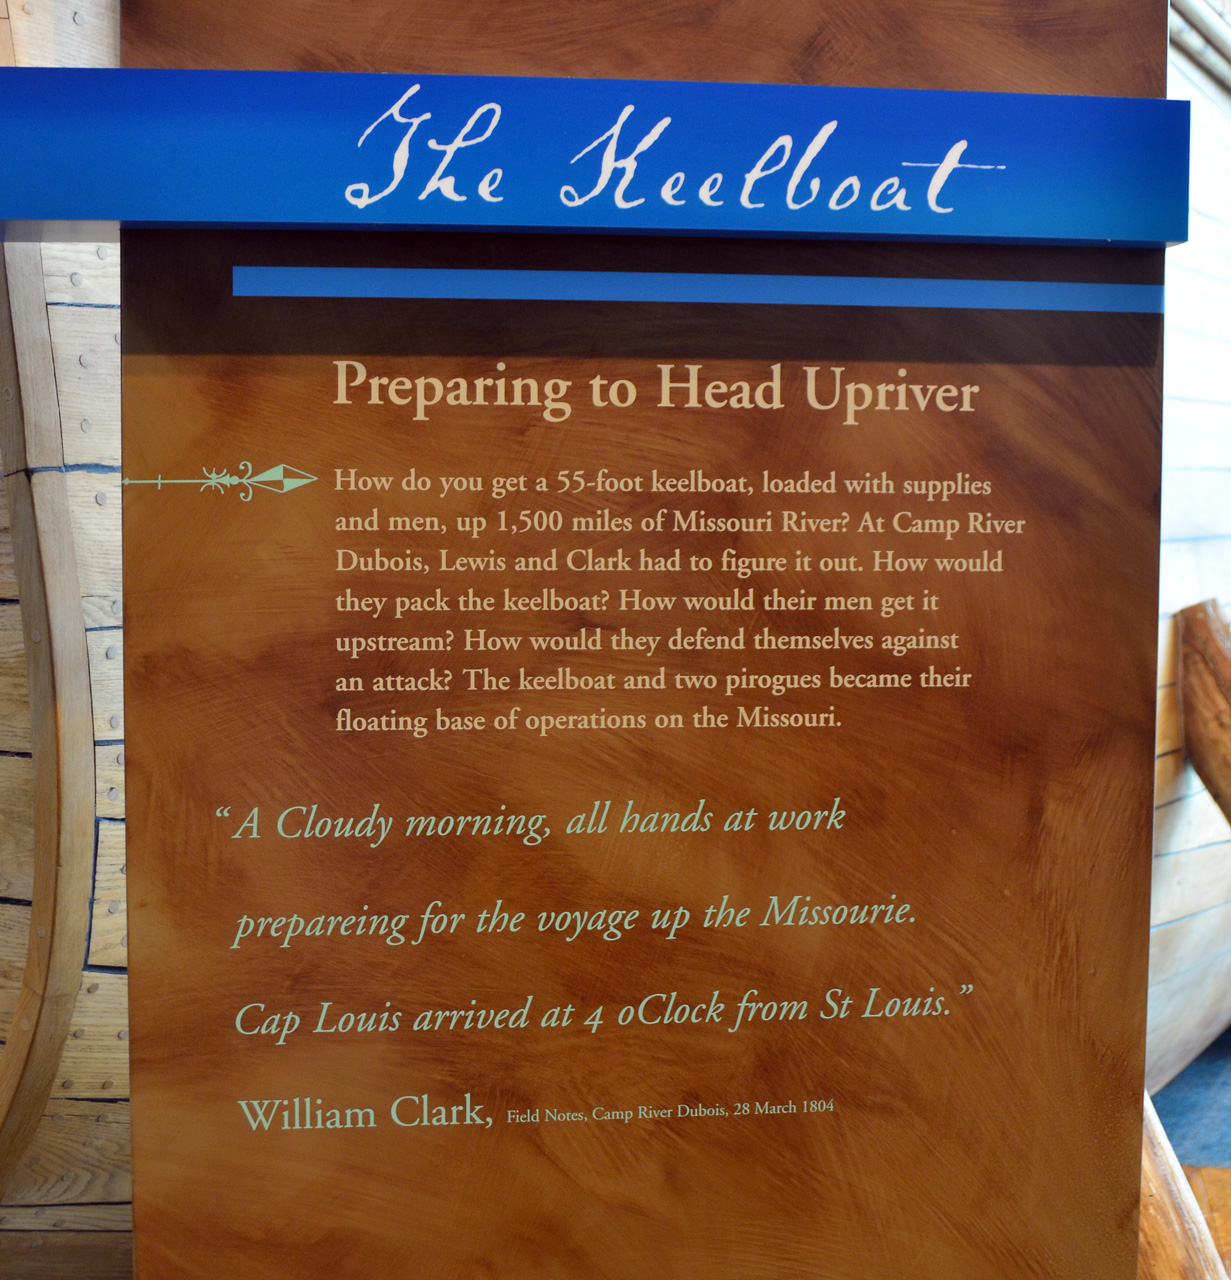 The Keelboat
Preparing to Head Upriver
How do you get a 55-foot keelboat, loaded with supplies
and men, up 1,500 miles of Missouri River? At Camp River
Dubois, Lewis and Clark had to figure it out. How would
they pack the keelboat? How would their men get it
upstream? How would they defend themselves against
an attack? The keelboat and two pirogues became their
floating base of operations on the Missouri.
“A Cloudy morning, all hands at work
prepareing for the voyage up the Missourie.
Cap Louis arrived at 4 oClock from St Louis.”
William Clark, Field Notes, Camp River Dubois, 28 March 1804